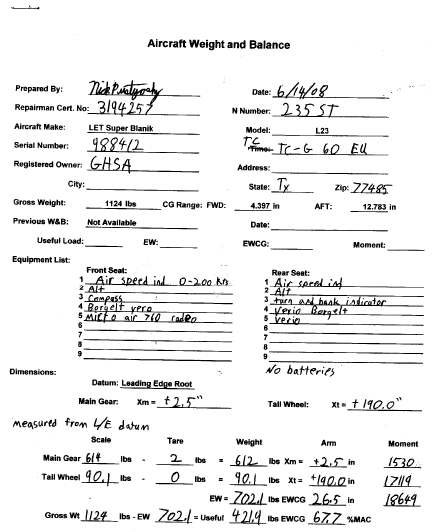 Aircraft Weight and Balance
Prepared By: Date: 6/14/08
Repairman Cert. No: 3194257 N Number: 235 ST
Aircraft Make: LET Super Blanik Model: L23
Serial Number: 988412 TC Time: TC-G 60 EU
Registered Owner: GHSA Address:
City: State: Tx Zip: 77485
Gross Weight: 1124 lbs CG Range: FWD: 4.397 in AFT: 12.783 in
Previous W&B: Not Available Date:
Useful Load: EW: EWCG: Moment:
Equipment List:
Front Seat: Rear Seat:
1 Air speed ind 0-200 Kts 1 Air speed ind
2 Alt 2 Alt
3 Compass 3 turn and bank indicator
4 Borgelt vero 4 Verio Borgelt
5 Micro air 760 radio 5 verio
6 6
7 7
8 8
9 9
Dimensions: No batteries
Datum: Leading Edge Root
Main Gear: Xm = +2.5" Tail Wheel: Xt = +190.0"
measured from L/E datum
Scale Tare Weight Arm Moment
Main Gear 614 lbs - 2 lbs = 612 lbs Xm = +2.5 in 1530
Tail Wheel 90.1 lbs - 0 lbs = 90.1 lbs Xt = +190.0 in 17119
EW = 702.1 lbs EWCG 26.5 in 18649
Gross Wt 1124 lbs - EW 702.1 = Useful 421.9 lbs EWCG 67.7 %MAC